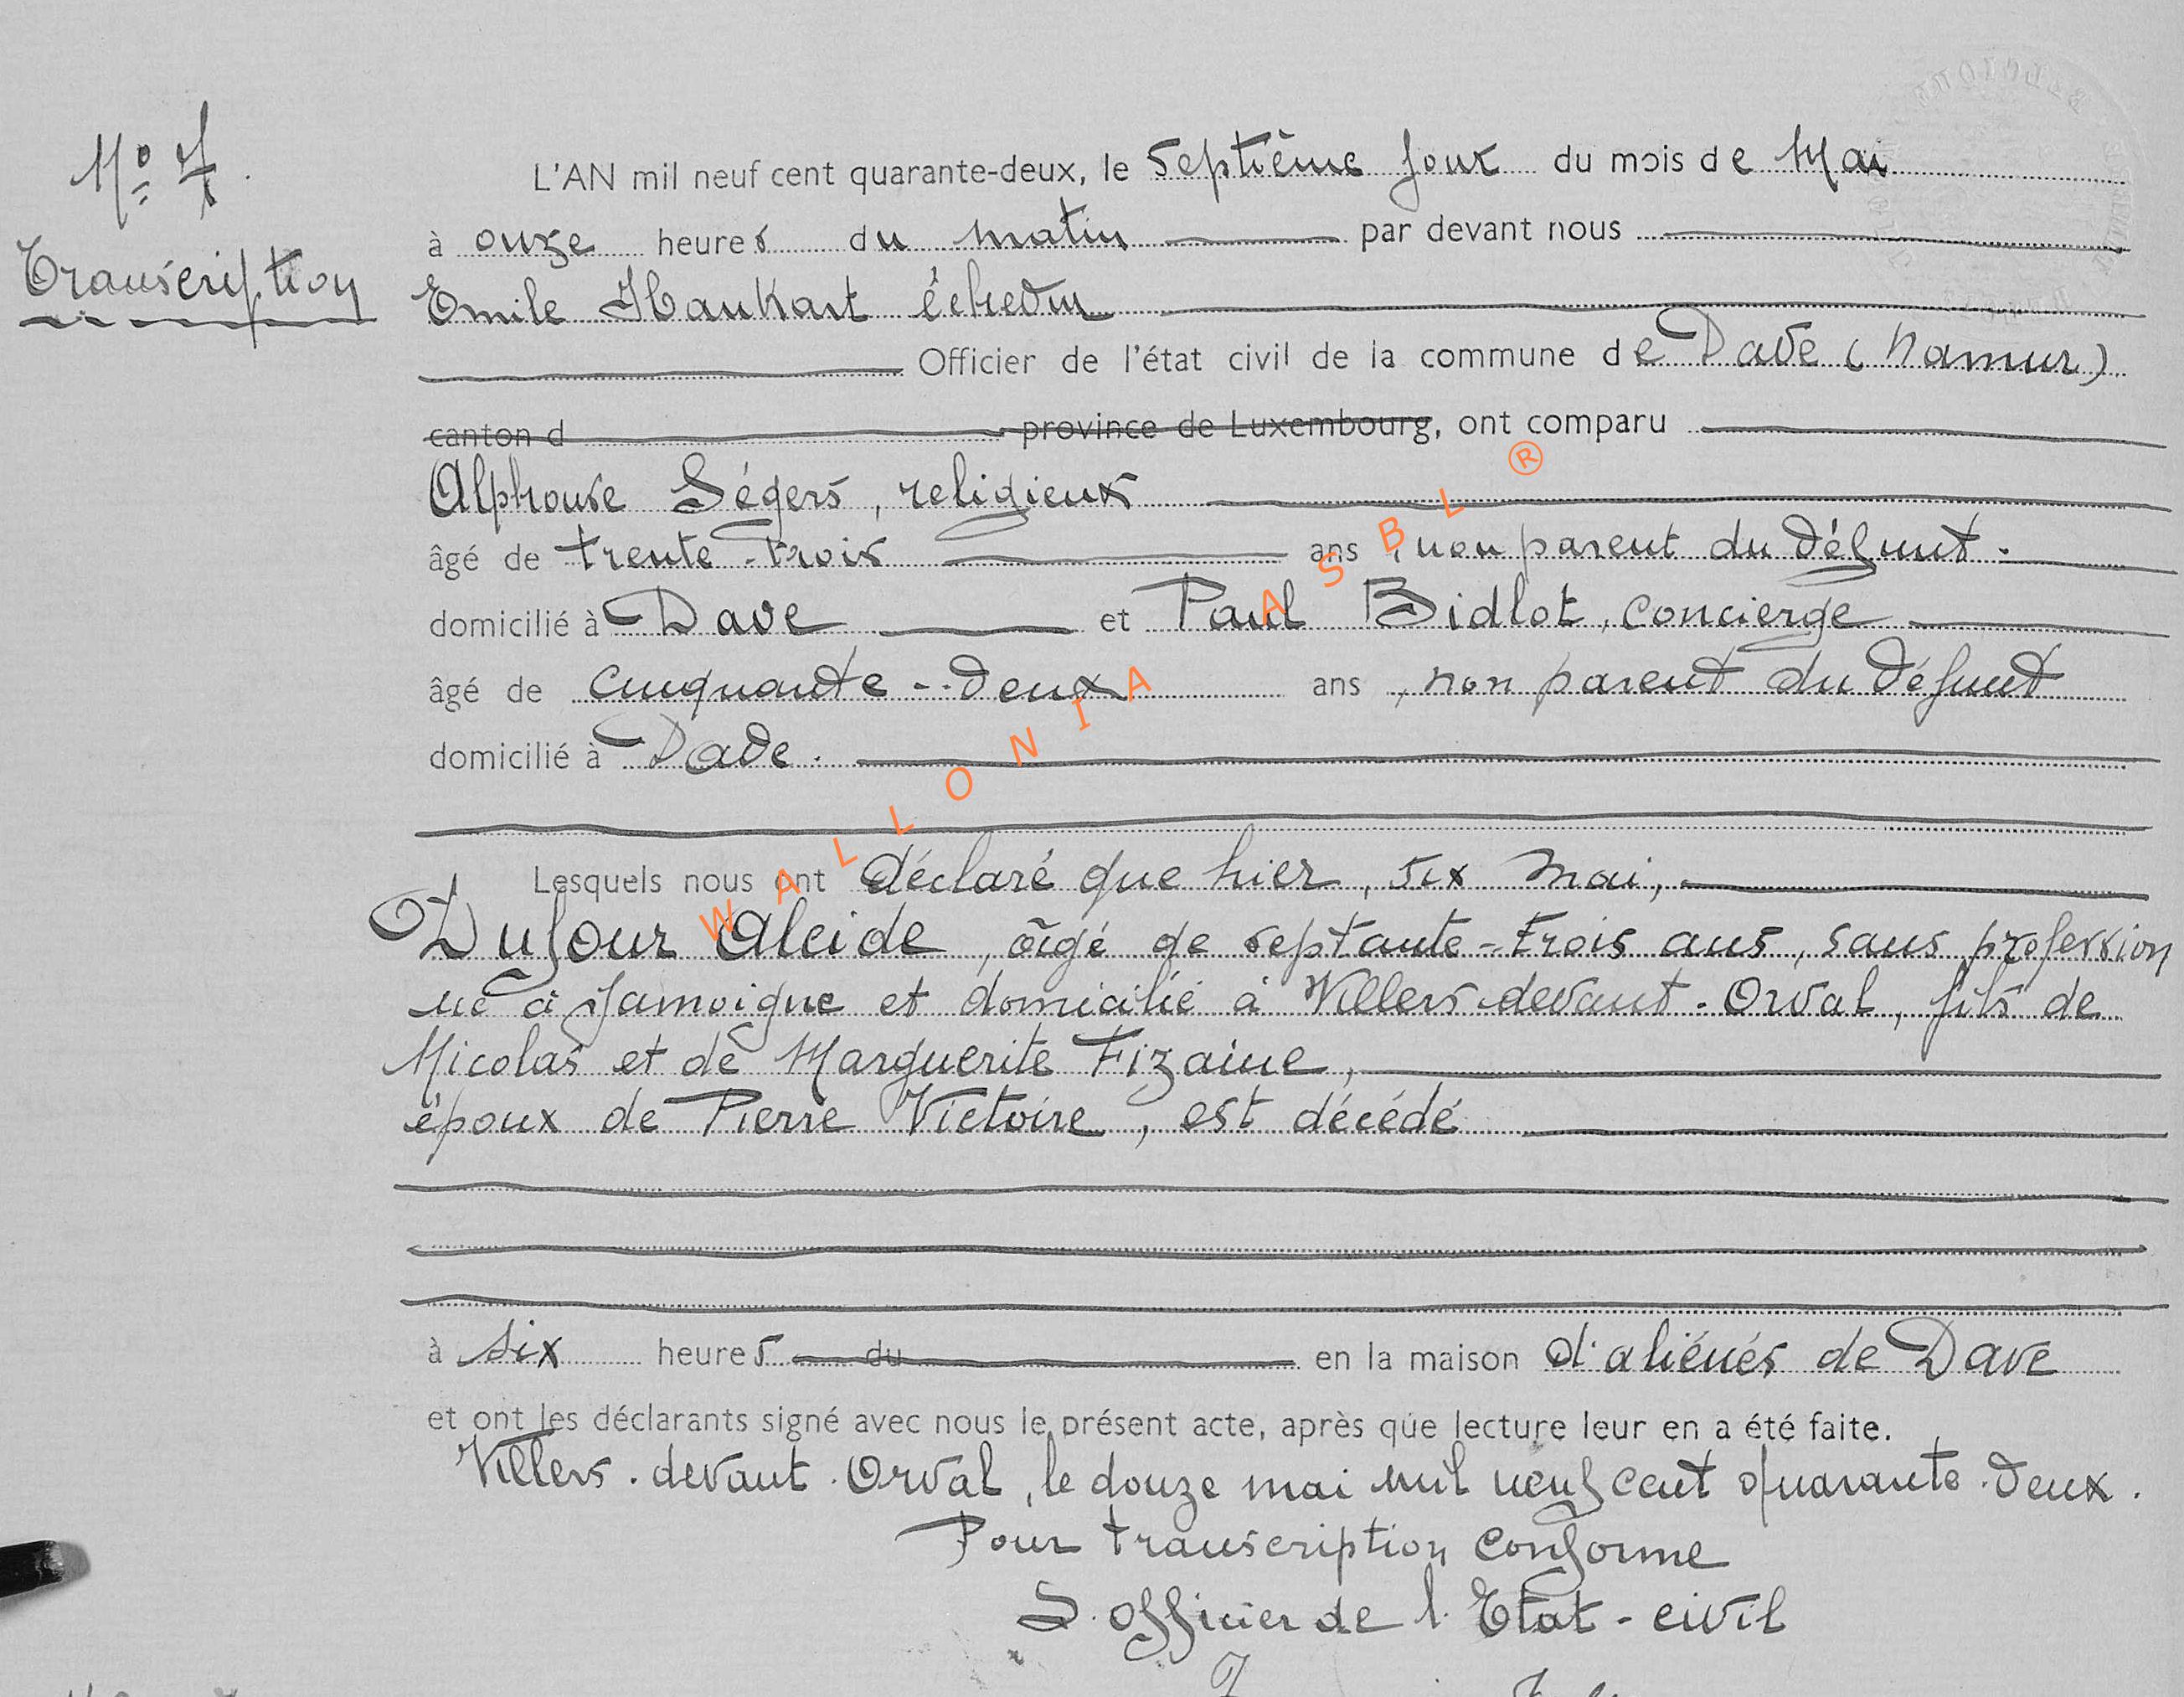 No 7.
Transcription
L'AN mil neuf cent quarante-deux, le septième jour du mois de Mai
à onze heures du matin par devant nous
Emile Hankart échevin
Officier de l'état civil de la commune de Dave (Namur)
canton d province de Luxembourg, ont comparu
Alphonse Ségers, religieux
âgé de trente-trois ans, non parent du défunt.
domicilié à Dave et Paul Bidlot, concierge
âgé de cinquante-deux ans, non parent du défunt
domicilié à Dave.
Lesquels nous ont déclaré que hier, six mai,
Dufour Alcide, âgé de septante-trois ans, sans profession
né à Jamoigne et domicilié à Villers-devant-Orval, fils de
Nicolas et de Marguerite Fizaine,
époux de Pierre Victoire, est décédé
à six heures du en la maison d'aliénés de Dave
et ont les déclarants signé avec nous le présent acte, après que lecture leur en a été faite.
Villers-devant-Orval, le douze mai mil neuf cent quarante-deux.
Pour transcription conforme
L'officier de l'Etat-civil
WALLONIA ASBL ®